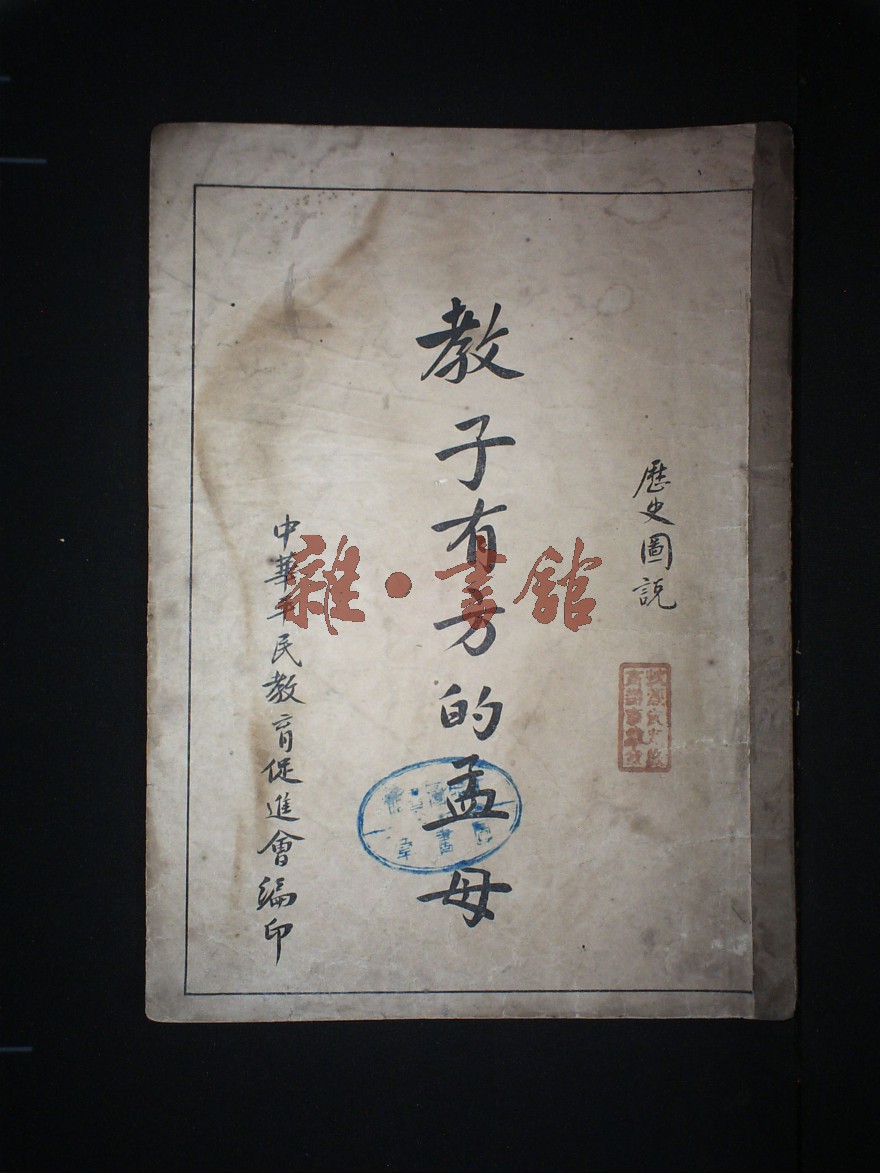 歷史圖説
教子有方的孟母
中華平民教育促進會編印
雜·書館